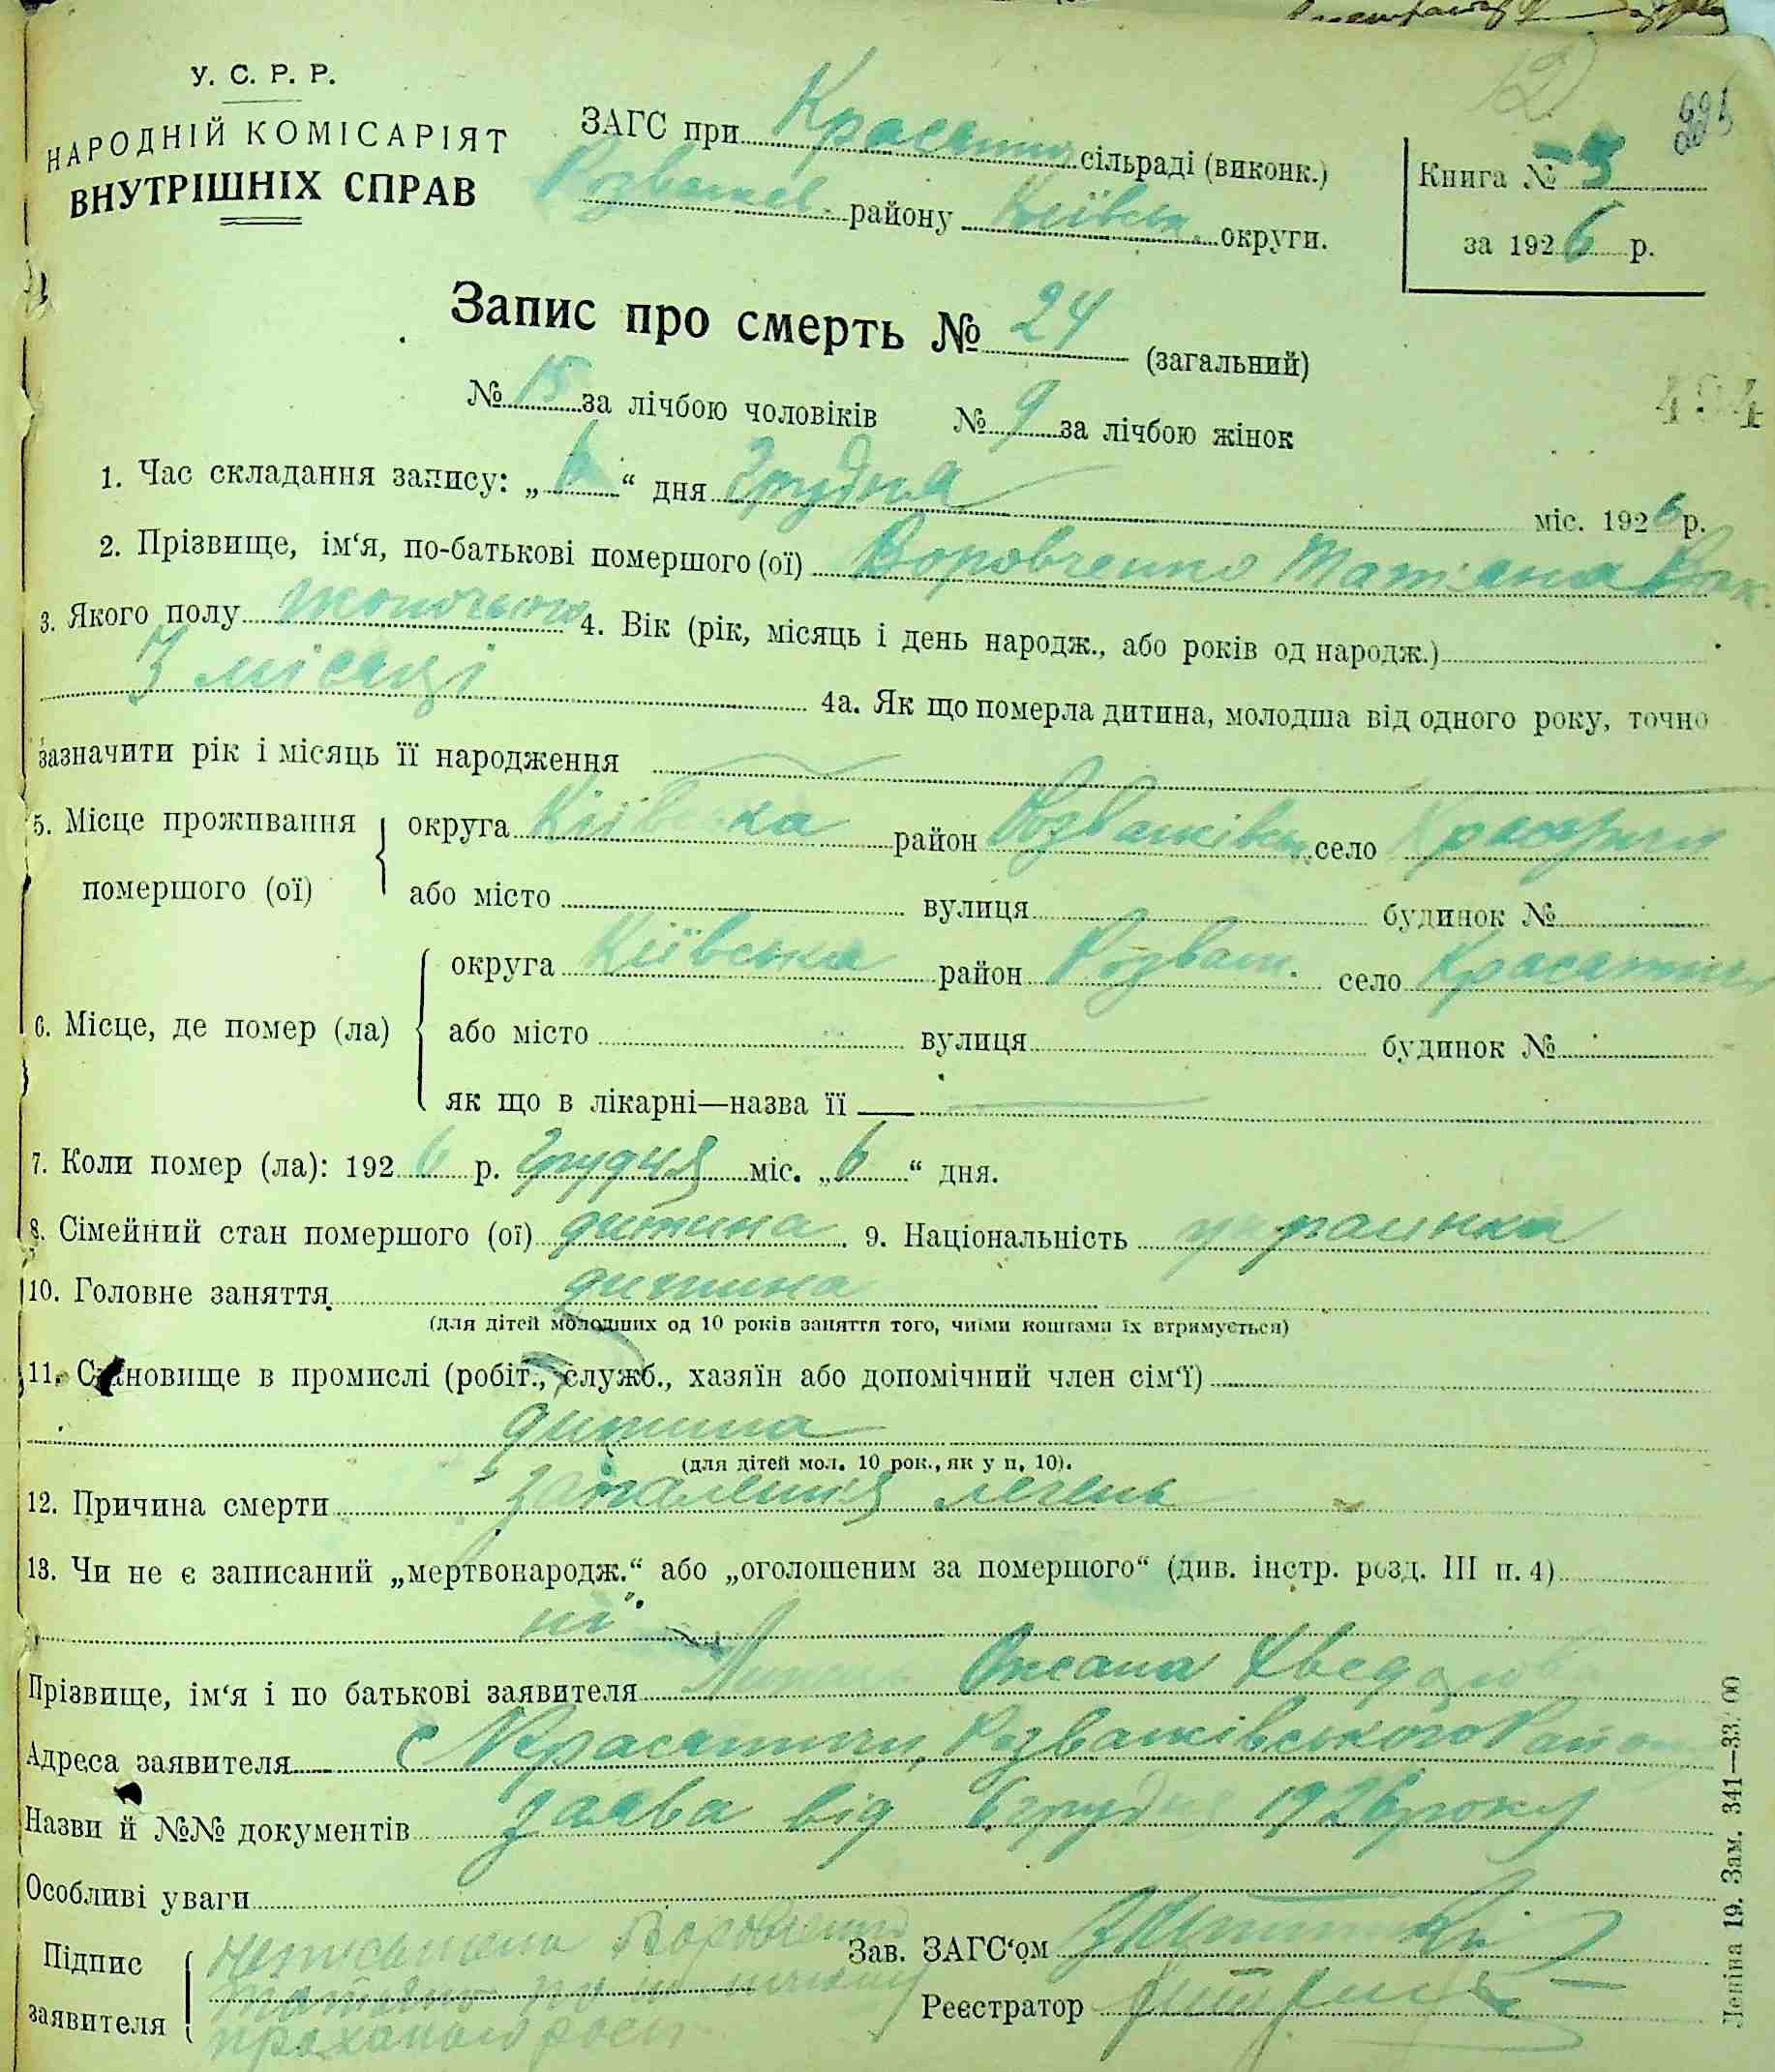 У. С. Р. Р.
НАРОДНІЙ КОМІСАРІЯТ
ВНУТРІШНІХ СПРАВ
ЗАГС при сільраді (виконк.)
району Київськ. округи.
Книга № 3
за 1926 р.
Запис про смерть № 24 (загальний)
№ 15 за лічбою чоловіків № 9 за лічбою жінок
494
1. Час складання запису: „6“ дня Грудня міс. 1926 р.
2. Прізвище, ім‘я, по-батькові помершого (ої) Воровченко
3. Якого полу жоночого 4. Вік (рік, місяць і день народж., або років од народж.)
3 місяці 4а. Як що померла дитина, молодша від одного року, точно
зазначити рік і місяць її народження
5. Місце проживання помершого (ої) округа Київська район село
або місто вулиця будинок №
6. Місце, де помер (ла) округа Київська район Розваж. село Красятичі
або місто вулиця будинок №
як що в лікарні—назва її
7. Коли помер (ла): 1926 р. грудня міс. „6“ дня.
8. Сімейний стан помершого (ої) дитина 9. Національність украинка
10. Головне заняття дитина
(для дітей молодших од 10 років заняття того, чиїми коштами їх втримується)
11. Становище в промислі (робіт., служб., хазяїн або допомічний член сім‘ї)
дитина
(для дітей мол. 10 рок., як у п. 10).
12. Причина смерти запалення легень
13. Чи не є записаний „мертвонародж.“ або „оголошеним за помершого“ (див. інстр. розд. III п. 4)
ні
Прізвище, ім‘я і по батькові заявителя Оксана
Адреса заявителя с Красятичи, Розважівського Району
Назви й №№ документів заява від 6 грудня 1926 року
Особливі уваги
Підпис заявителя неписьмена
Зав. ЗАГС‘ом
Реєстратор
Леніна 19. Зам. 341—33.